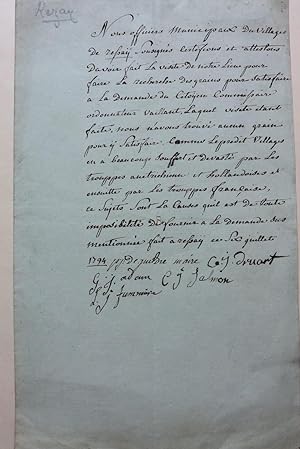 Rezay
Nous officiers Municipaux Du Villages
de ressay Sousignés Certifions et attestons
Davoir fait La visite de notre Lieu pour
faire La recherche Des grains pour Satisfaire
a La demande du Citoyen Commissaire
ordonnateur Vaillant, Laquel visite etant
faite, nous navons trouvé aucun grain
pour y Satisfaire, Comme Le predit Villages
en a beaucoup Souffert et devasté par Les
trouppes autrichienne et hollandoises et
ensuitte par Les trouppes française,
ce Sujets Sont La Cause quil est de toute
impossibilité De fournir a La demande Sus
mentionnée fait a ressay ce Six juillet
1794 maire C J Druart
G J adam C J Salmon